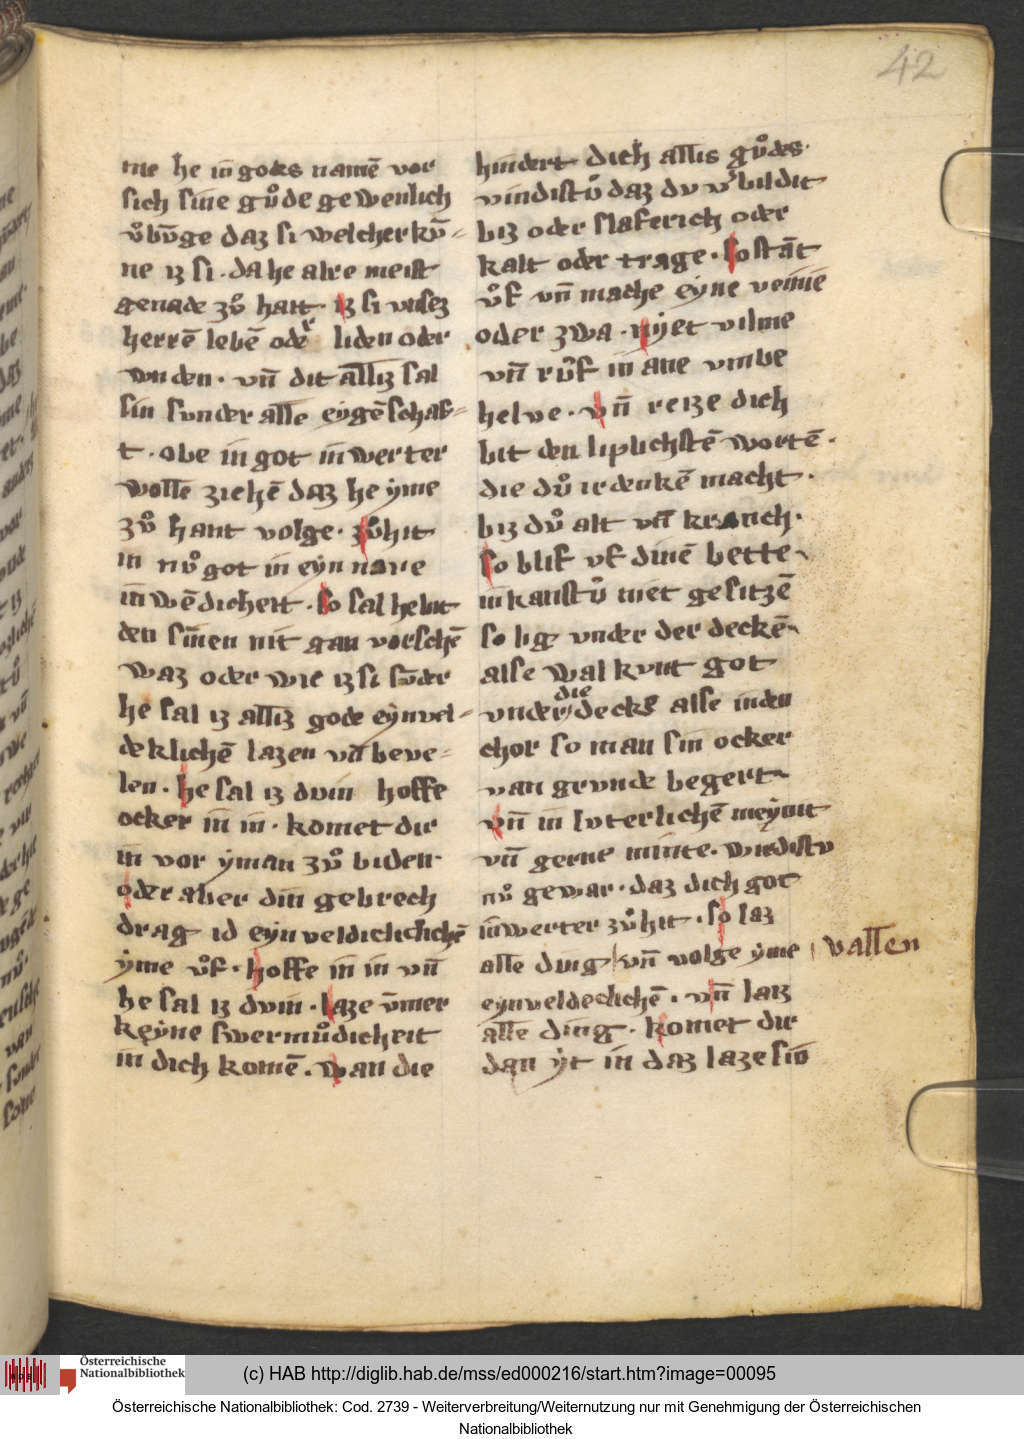 42
me he in godes namē vor
sich sine gůde gewenlich
v̊bv̄ge daz si welcher kv̄=
ne iz si · da he alre meist
genade zv̊ hait · iz si vnsez
herrē lebē oder liden oder
wnden · vn̄ dit alliz sal
sin svnder alle eygēschaf=
t · obe in got inwerter
wolle ziehē daz he ẏme
zv̊ hant volge · zv̊hit
in nv̊ got in eyn naue
inwēdicheit · so sal he
den sinen nit gan vorschē
waz oder wie iz si sv̄der
he sal iz alliz gode eẏnvel=
deklichē lazen vn̄ beve=
len · he sal iz dvin hoffe
ocker in in · komet dir
in vor ẏman zv̊ biden ·
oder aber din gebrech
drag id eẏnveldiclichlichē
ẏme v̊f · hoffe in in vn̄
he sal iz dvin · laze v̄mer
keẏne swermůdicheit
in dich komē · wan die
hindert dich allis gůdes ·
vindistv̊ daz dv v̓bildit
biz oder slaferich oder
kalt oder trage · so stāt
v̊f vn̄ mache eyne venie
oder zwa · nẏet vilme
vn̄ rv̊f in ane vmbe
helve · vn̄ reize dich
bit den liplichstē wortē ·
die dv̊ irdenkē macht ·
biz dv̊ alt vn̄ kranch ·
so blif vf dinē bette
inkanstv̊ niet gesitzē
so lig vnder der deckē
alse wal kvmt got
vnder die decke alse inden
chor so man sin ocker
van grvnde begert
vn̄ in lvterlichē meẏnit
vn̄ gerne minte · windistv
nv̊ gewar · daz dich got
inwerter zv̊hit · so laz
alle ding vn̄ volge ẏme | vallen
eynveldeclichē · vn̄ laiz
alle ding · komet dir
dan ẏt in daz laze sin
Österreichische
Nationalbibliothek
(c) HAB http://diglib.hab.de/mss/ed000216/start.htm?image=00095
Österreichische Nationalbibliothek: Cod. 2739 - Weiterverbreitung/Weiternutzung nur mit Genehmigung der Österreichischen
Nationalbibliothek